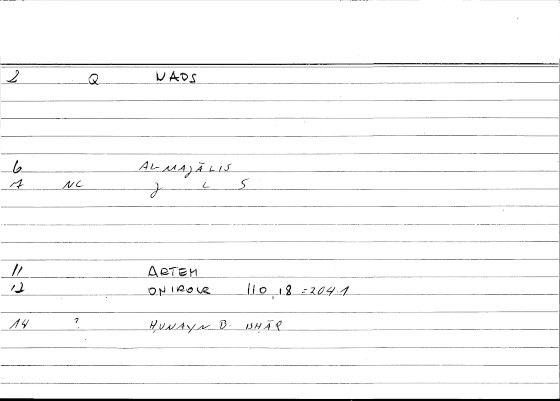 2 Q WADS
6 AL-MAJĀLIS
7 NC J L S
11 ARTEM
12 ONIROCR 110,18 = 204.1
14 ? ḤUNAYN B. ISḤĀQ